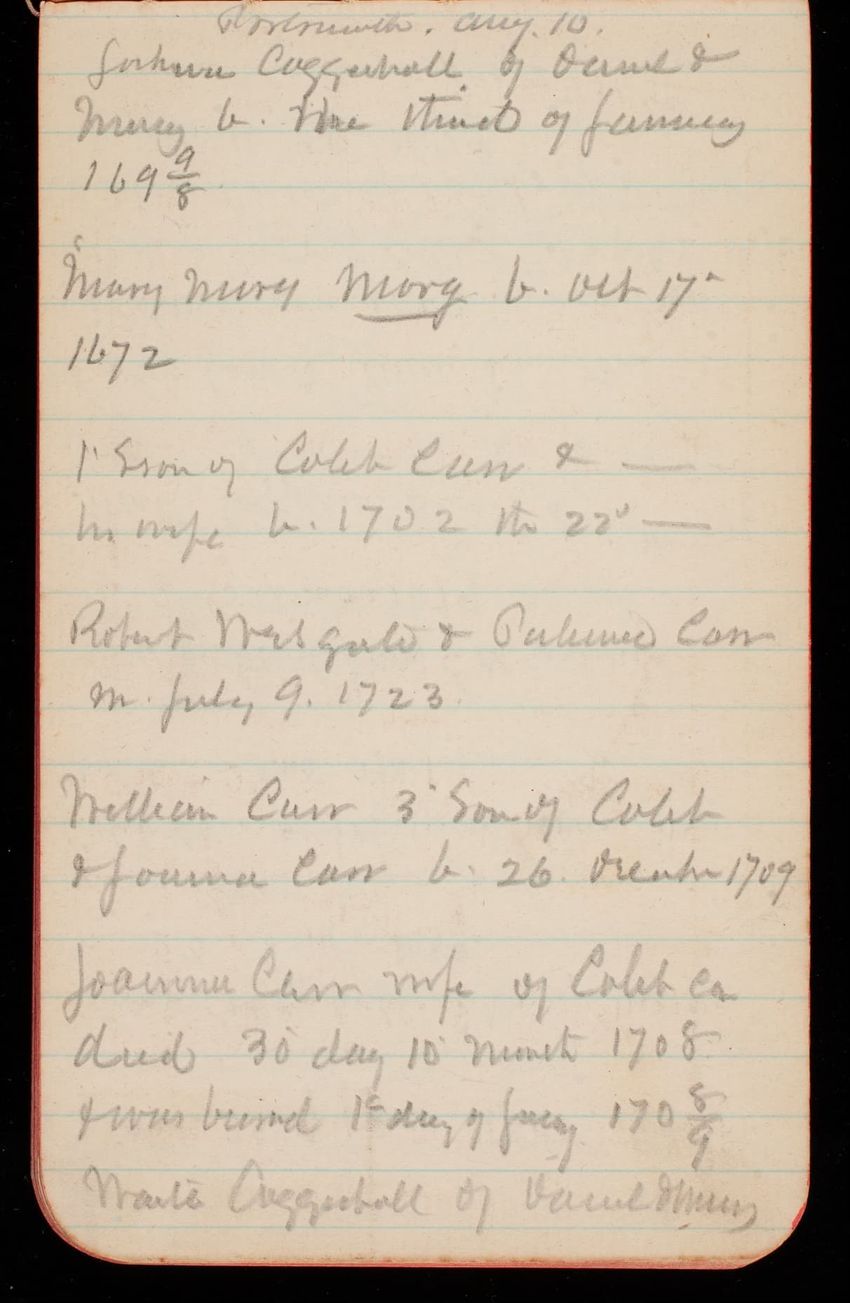 Portsmouth. Aug. 10.
Joshua Coggeshall of Daniel &
Mercy b. the third of January
169 9/8
Mary Mercy Mory b. Oct 17
1672
1 Son of Caleb Carr &
his wife b. 1702 the 22
Robert Westgate & Patience Carr
m. July 9. 1723.
William Carr 3 Son of Caleb
& Joanna Carr b. 26. 1709
Joanna Carr wife of Caleb Ca
died 30 day 10 Month 1708
& was buried 1st day of 170 8/9
Waite Coggeshall of Daniel & Mercy